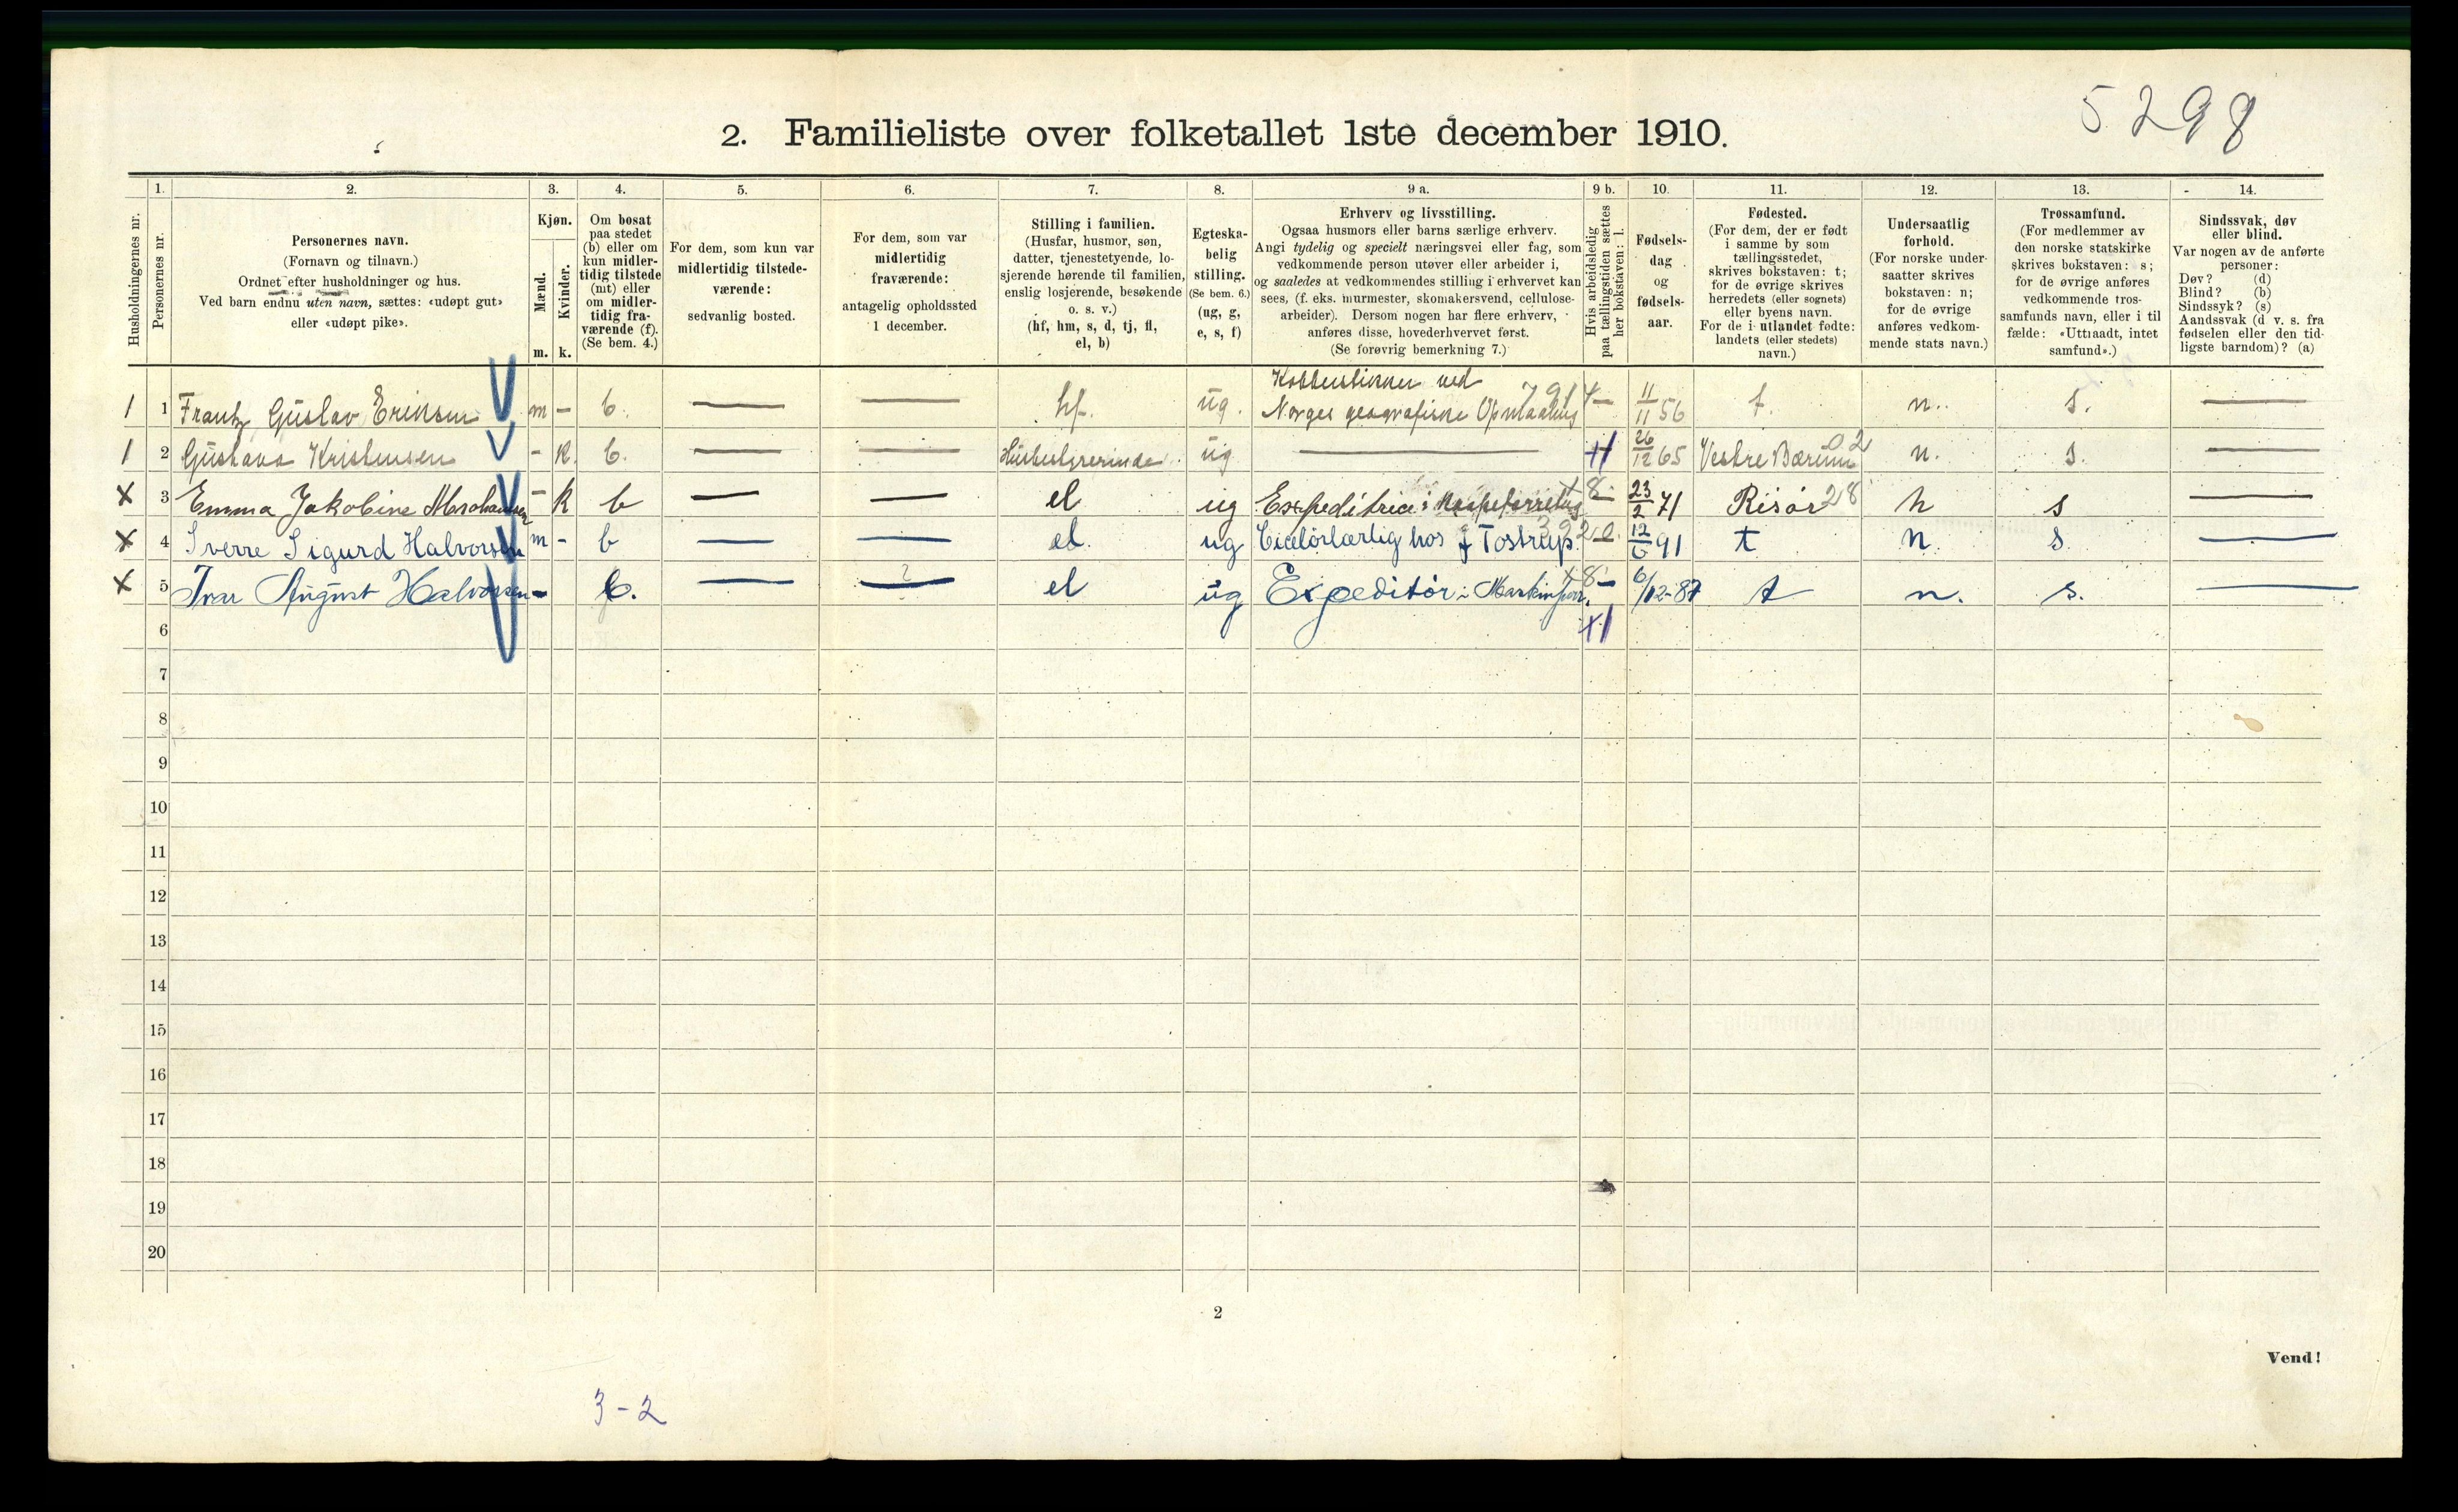 5298
2. Familieliste over folketallet 1ste december 1910.
1. 2. 3. 4. 5. 6. 7. 8. 9 a. 9 b. 10. 11. 12. 13. 14.
Husholdningernes nr.
Personernes nr.
Personernes navn.
(Fornavn og tilnavn.)
Ordnet efter husholdninger og hus.
Ved barn endnu uten navn, sættes: «udøpt gut»
eller «udøpt pike».
Kjøn.
Mænd.
Kvinder.
m. k.
Om bosat
paa stedet
(b) eller om
kun midler-
tidig tilstede
(mt) eller
om midler-
tidig fra-
værende (f).
(Se bem. 4.)
For dem, som kun var
midlertidig tilstede-
værende:
sedvanlig bosted.
For dem, som var
midlertidig
fraværende:
antagelig opholdssted
1 december.
Stilling i familien.
(Husfar, husmor, søn,
datter, tjenestetyende, lo-
sjerende hørende til familien,
enslig losjerende, besøkende
o. s. v.)
(hf, hm, s, d, tj, fl,
el, b)
Egteska-
belig
stilling.
(Se bem. 6.)
(ug, g,
e, s, f)
Erhverv og livsstilling.
Ogsaa husmors eller barns særlige erhverv.
Angi tydelig og specielt næringsvei eller fag, som
vedkommende person utøver eller arbeider i,
og saaledes at vedkommendes stilling i erhvervet kan
sees, (f. eks. murmester, skomakersvend, cellulose-
arbeider). Dersom nogen har flere erhverv,
anføres disse, hovederhvervet først.
(Se forøvrig bemerkning 7.)
Hvis arbeidsledig
paa tællingstiden sættes
her bokstaven: l.
Fødsels-
dag
og
fødsels-
aar.
Fødested.
(For dem, der er født
i samme by som
tællingsstedet,
skrives bokstaven: t;
for de øvrige skrives
herredets (eller sognets)
eller byens navn.
For de i utlandet fødte:
landets (eller stedets)
navn.)
Undersaatlig
forhold.
(For norske under-
saatter skrives
bokstaven: n;
for de øvrige
anføres vedkom-
mende stats navn.)
Trossamfund.
(For medlemmer av
den norske statskirke
skrives bokstaven: s;
for de øvrige anføres
vedkommende tros-
samfunds navn, eller i til
fælde: «Uttraadt, intet
samfund».)
Sindssvak, døv
eller blind.
Var nogen av de anførte
personer:
Døv? (d)
Blind? (b)
Sindssyk? (s)
Aandssvak (d v. s. fra
fødselen eller den tid-
ligste barndom)? (a)
1 1 Frantz Gustav Eriksen m - b. — — hf. ug. Kobberstikker ved Norges geografiske Opmaaling 7914 — 11/11 56 t. n. s. —
1 2 Gustava Kristensen - k. b. — — Husbestyrerinde ug — 26/12 65 Vestre Bærum 02 n. s. —
x 3 Emma Jakobine - k b — — el ug Expeditrice i x8 - 23/2 71 Risør 28 n s —
x 4 Sverre Sigurd Halvorsen m - b — — el. ug hos J Tostrup. 12/6 91 t n. s. —
x 5 Ivar August Halvorsen - b. — ? — el ug Expeditør i x8 - 6/12-87 t n. s. —
6
7
8
9
10
11
12
13
14
15
16
17
18
19
20
2
Vend!
3-2